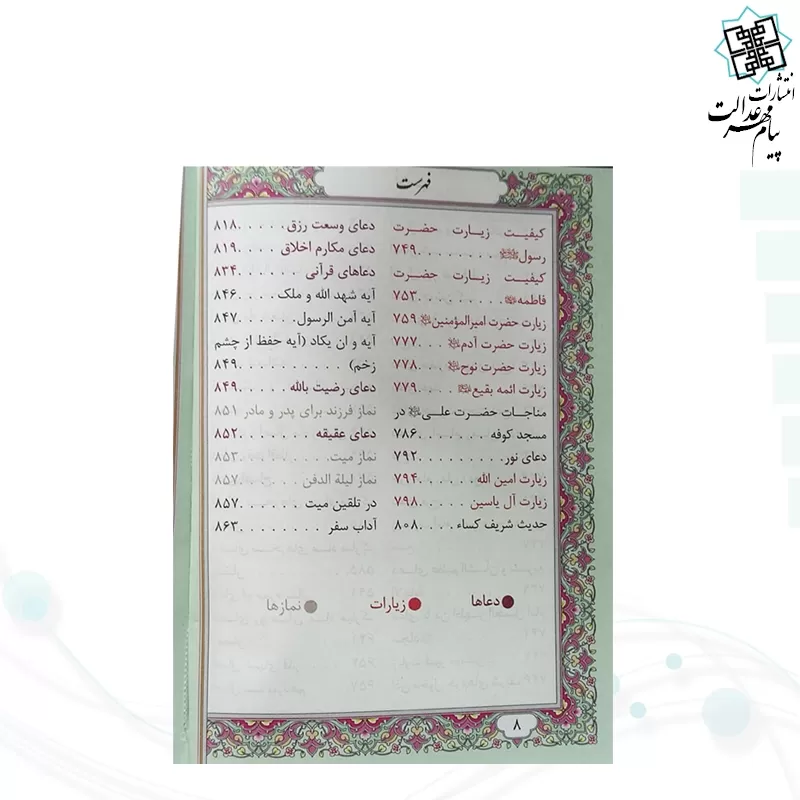 انتشارات
پیام مهر عدالت
فهرست
کیفیت زیارت حضرت
رسولﷺ . . . . . . . . .۷۴۹
کیفیت زیارت حضرت
فاطمه . . . . . . . . . .۷۵۳
زیارت حضرت امیرالمؤمنین ۷۵۹
زیارت حضرت آدم . . .۷۷۷
زیارت حضرت نوح . . .۷۷۸
زیارت ائمه بقیع . . . .۷۷۹
مناجات حضرت علی در
مسجد کوفه . . . . . . .۷۸۶
دعای نور. . . . . . . . .۷۹۲
زیارت امین الله . . . . . .۷۹۴
زیارت آل یاسین . . . . .۷۹۸
حدیث شریف کساء. . . . .۸۰۸
دعای وسعت رزق. . . . . .۸۱۸
دعای مکارم اخلاق . . . .۸۱۹
دعاهای قرآنی . . . . . .۸۳۴
آیه شهد الله و ملک . . . .۸۴۶
آیه آمن الرسول. . . . . . .۸۴۷
آیه و ان یکاد (آیه حفظ از چشم
زخم) . . . . . . . . . .۸۴۹
دعای رضیت بالله . . . . .۸۴۹
نماز فرزند برای پدر و مادر ۸۵۱
دعای عقیقه . . . . . . .۸۵۲
نماز میت. . . . . . . . .۸۵۳
نماز لیلة الدفن . . . . . .۸۵۷
در تلقین میت . . . . . .۸۵۷
آداب سفر . . . . . . . .۸۶۳
دعاها
زیارات
نمازها
۸